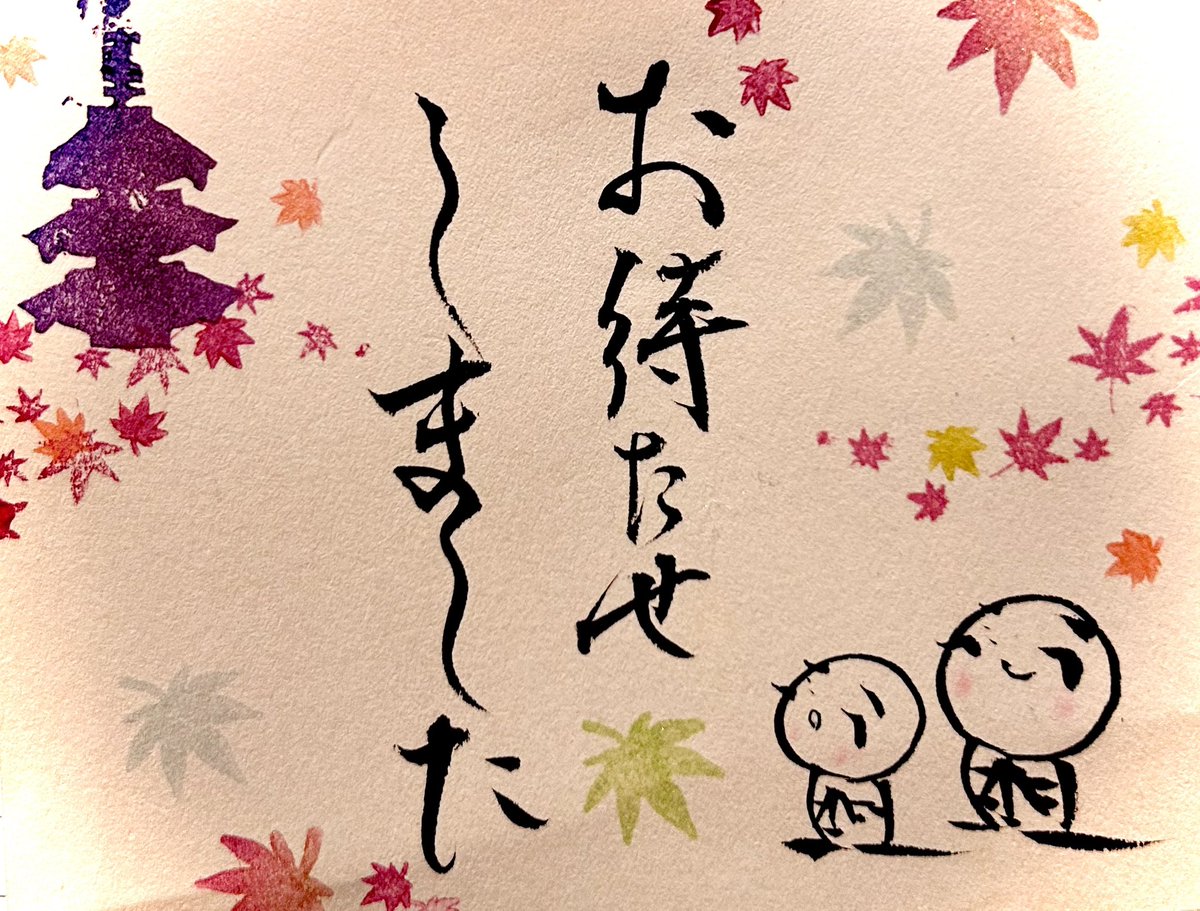 お待たせ
しました